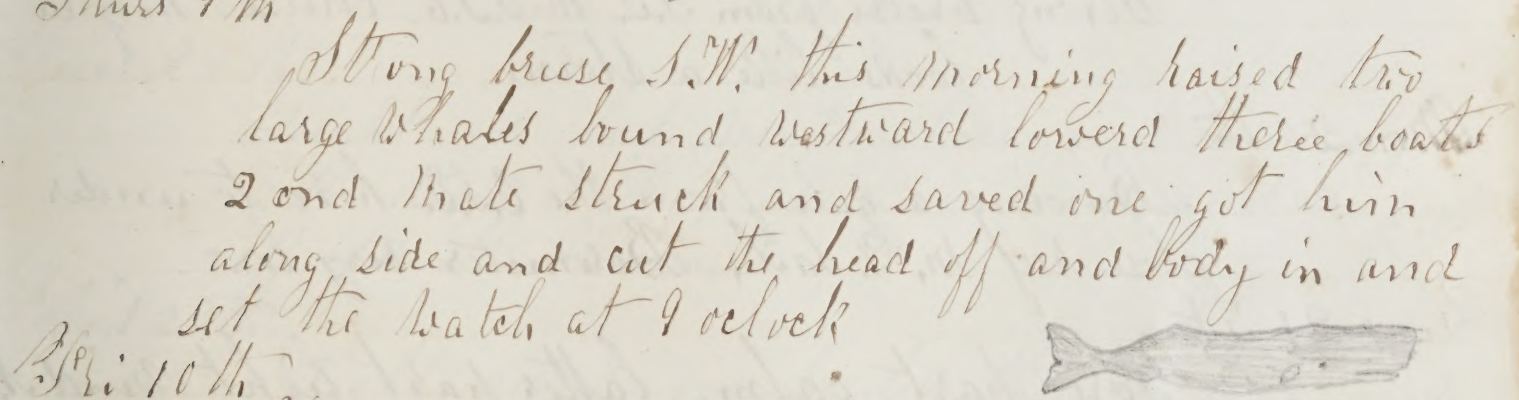 Thurs 9 th
Strong breese S.W. this morning raised two
large whales bound westward lowerd theree boats
2 ond mate struck and saved one got him
along side and cut the head off and body in and
set the watch at 9 oclock
Fri 10 th